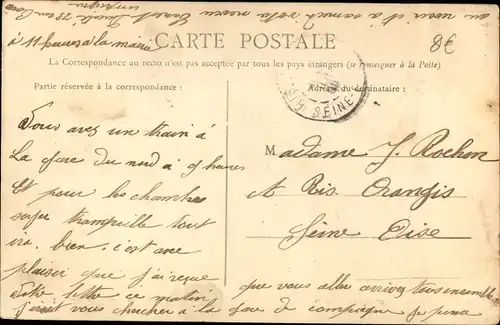 au revoir et à samedi votre neveu
à 11 heures à la mairie
CARTE POSTALE
8€
La Correspondance au recto n'est pas acceptée par tous les pays étrangers (se renseigner à la Poste)
Partie réservée à la correspondance :
Adresse du destinataire :
SEINE
Vous avez un train à
La gare du nord à 9 heures
Et pour les chambres
soyez tranquille tout
ira bien. c'est avec
plaisir que j'ai reçue
votre lettre ce matin
j'irait vous chercher à la gare de compiegne je pense
que vous allez arrivez tous ensemble
Madame J. Rochon
à Ris Orangis
Seine Oise